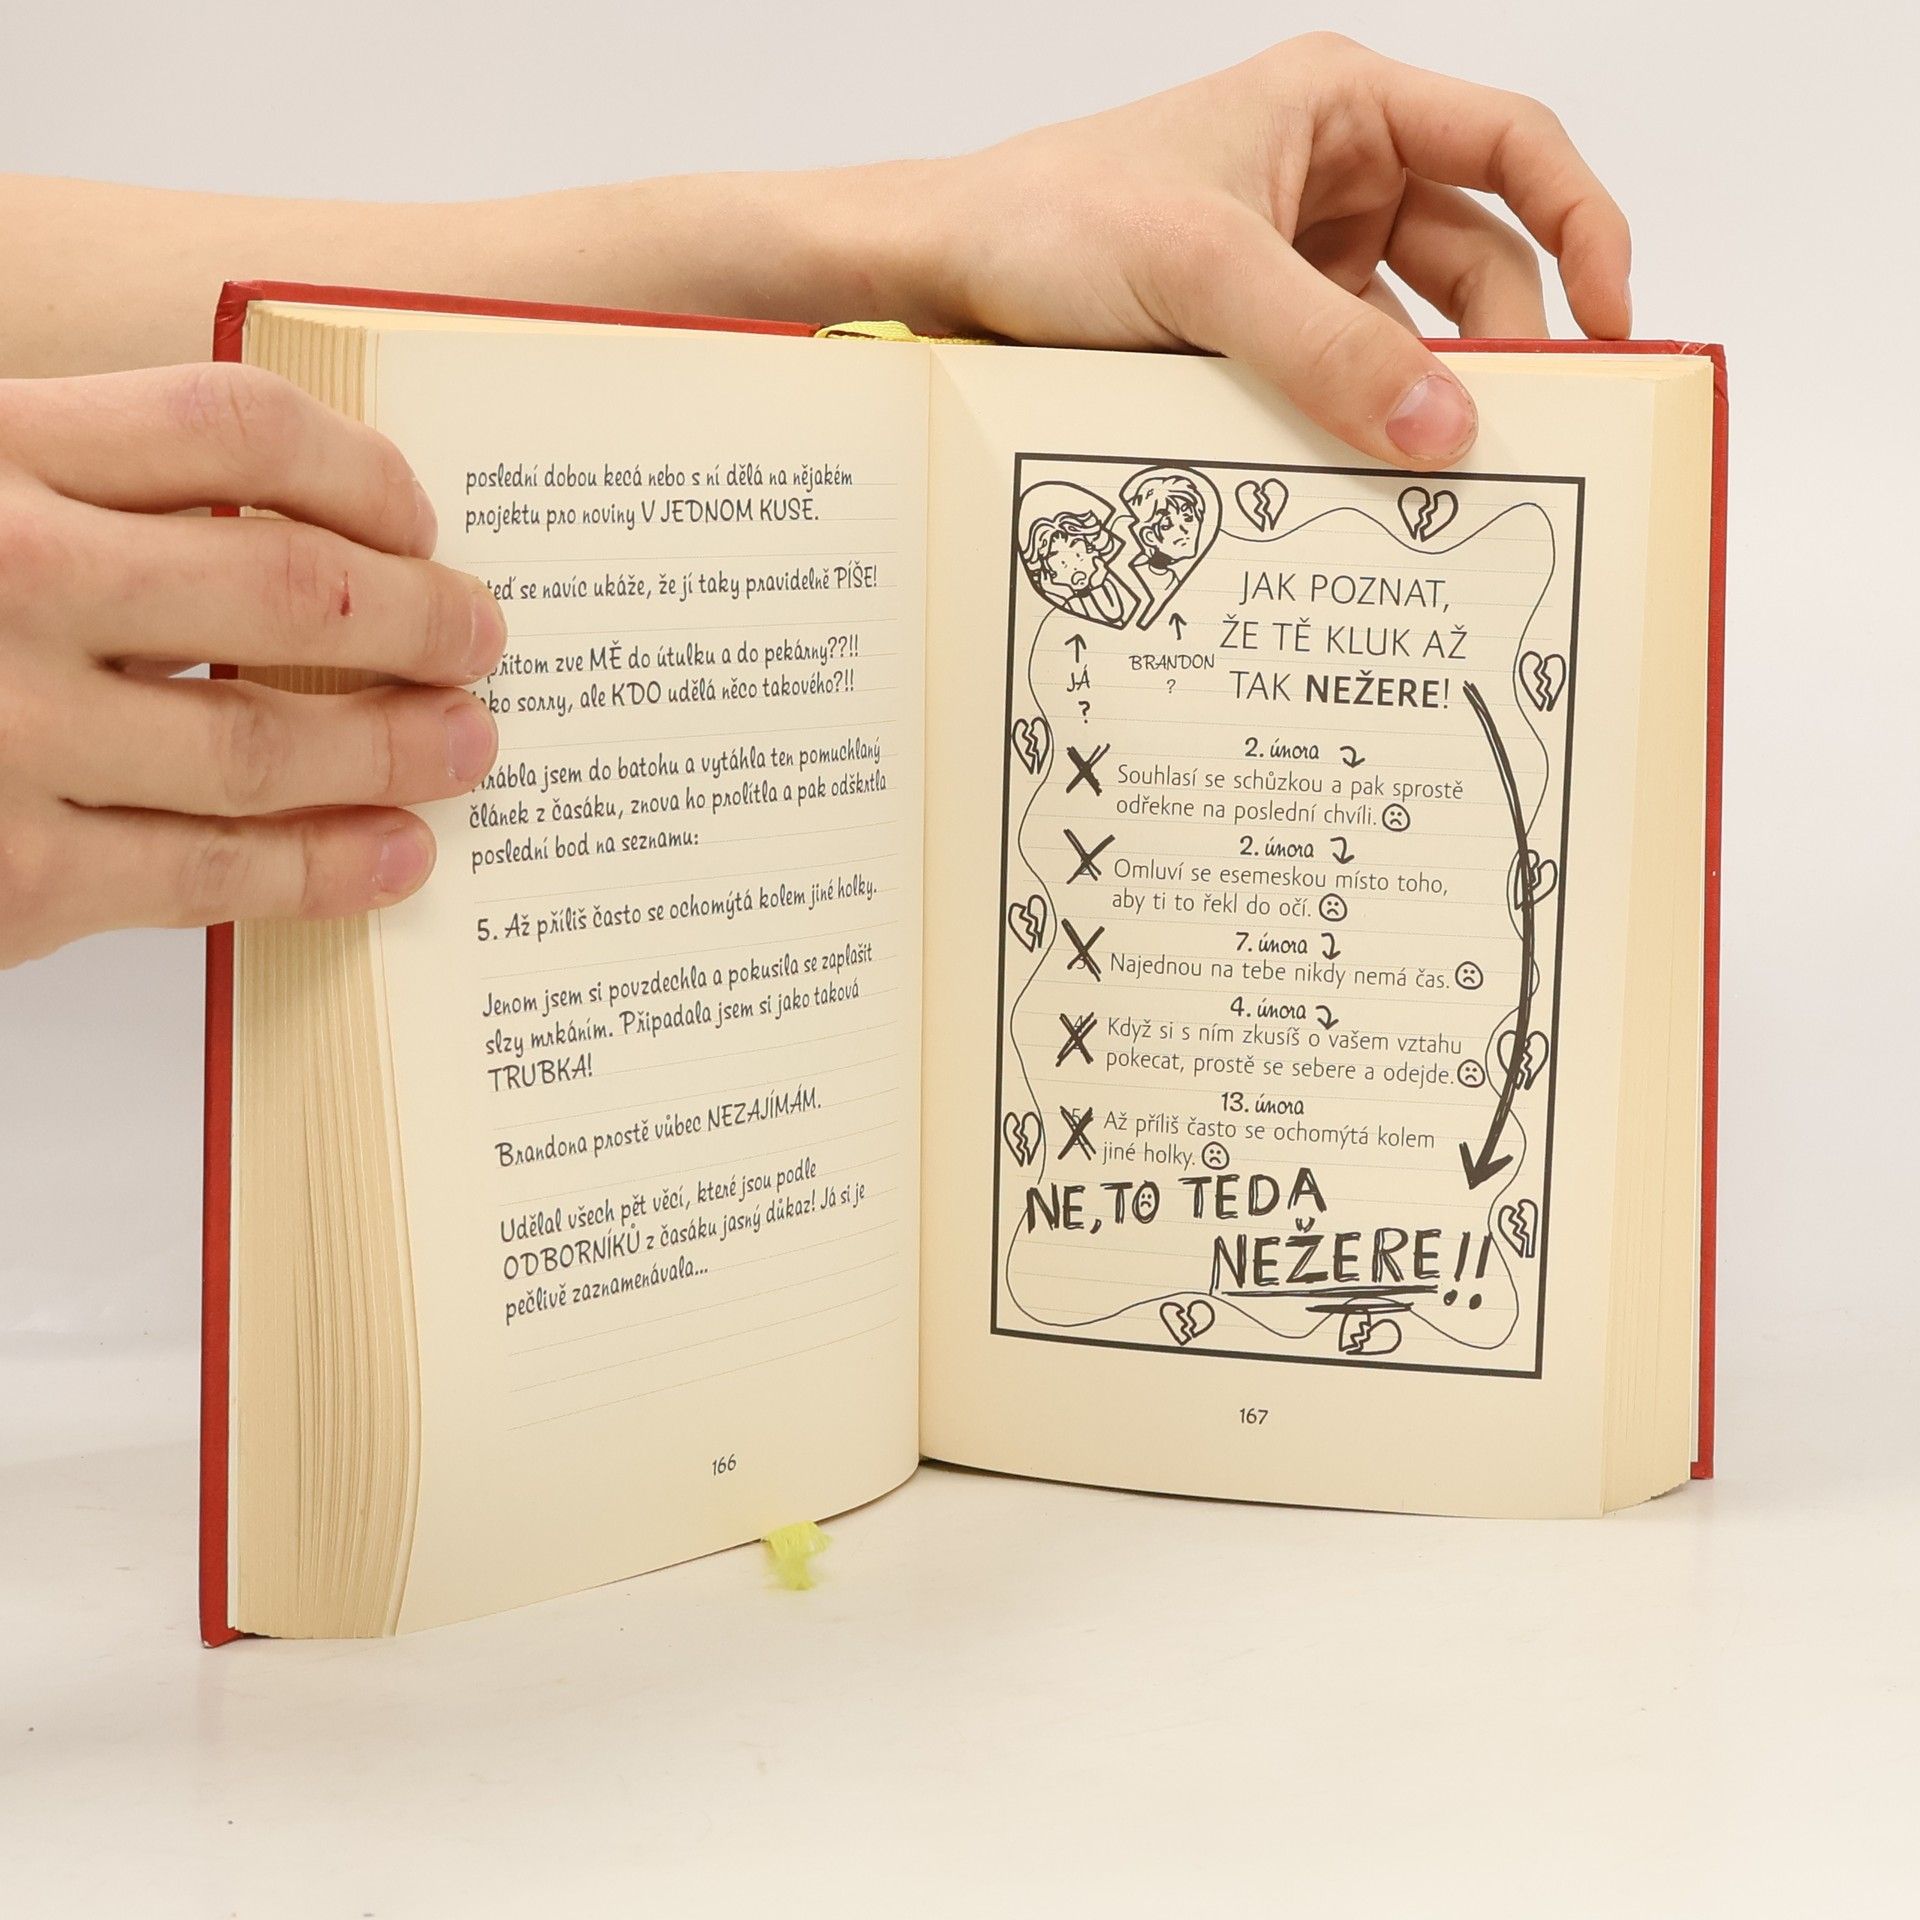 poslední dobou kecá nebo s ní dělá na nějakém
projektu pro noviny V JEDNOM KUSE.
teď se navíc ukáže, že jí taky pravidelně PÍŠE!
přitom zve MĚ do útulku a do pekárny??!!
sorry, ale KDO udělá něco takového?!!
jsem do batohu a vytáhla ten pomuchlaný
článek z časáku, znova ho prolítla a pak odškrtla
poslední bod na seznamu:
5. Až příliš často se ochomýtá kolem jiné holky.
Jenom jsem si povzdechla a pokusila se zaplašit
slzy mrkáním. Připadala jsem si jako taková
TRUBKA!
Brandona prostě vůbec NEZAJÍMÁM.
Udělal všech pět věcí, které jsou podle
ODBORNÍKŮ z časáku jasný důkaz! Já si je
pečlivě zaznamenávala...
166
JAK POZNAT,
ŽE TĚ KLUK AŽ
TAK NEŽERE!
JÁ
?
BRANDON
?
2. února
Souhlasí se schůzkou a pak sprostě
odřekne na poslední chvíli.
2. února
Omluví se esemeskou místo toho,
aby ti to řekl do očí.
7. února
Najednou na tebe nikdy nemá čas.
4. února
Když si s ním zkusíš o vašem vztahu
pokecat, prostě se sebere a odejde.
13. února
Až příliš často se ochomýtá kolem
jiné holky.
NE, TO TEDA
NEŽERE!!
167